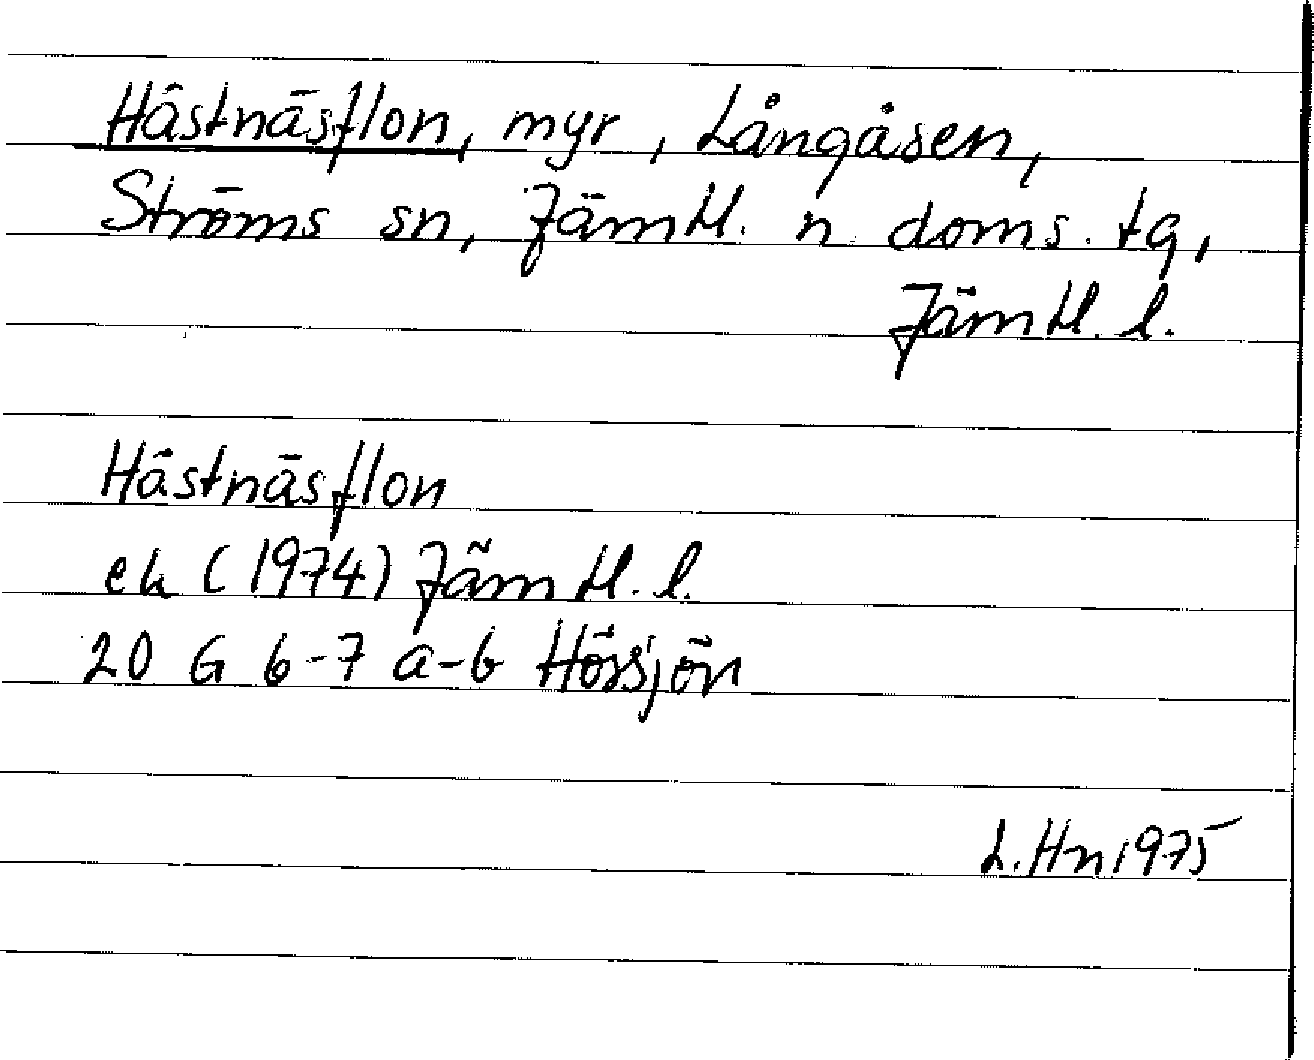 Hästnäsflon, myr, Långåsen,
Ströms sn, Jämtl. n doms. tg,
Jämtl. l.
Hästnäsflon
ek (1974) Jämtl. l.
20 G 6-7 a-b Hössjön
L. Hn 1975